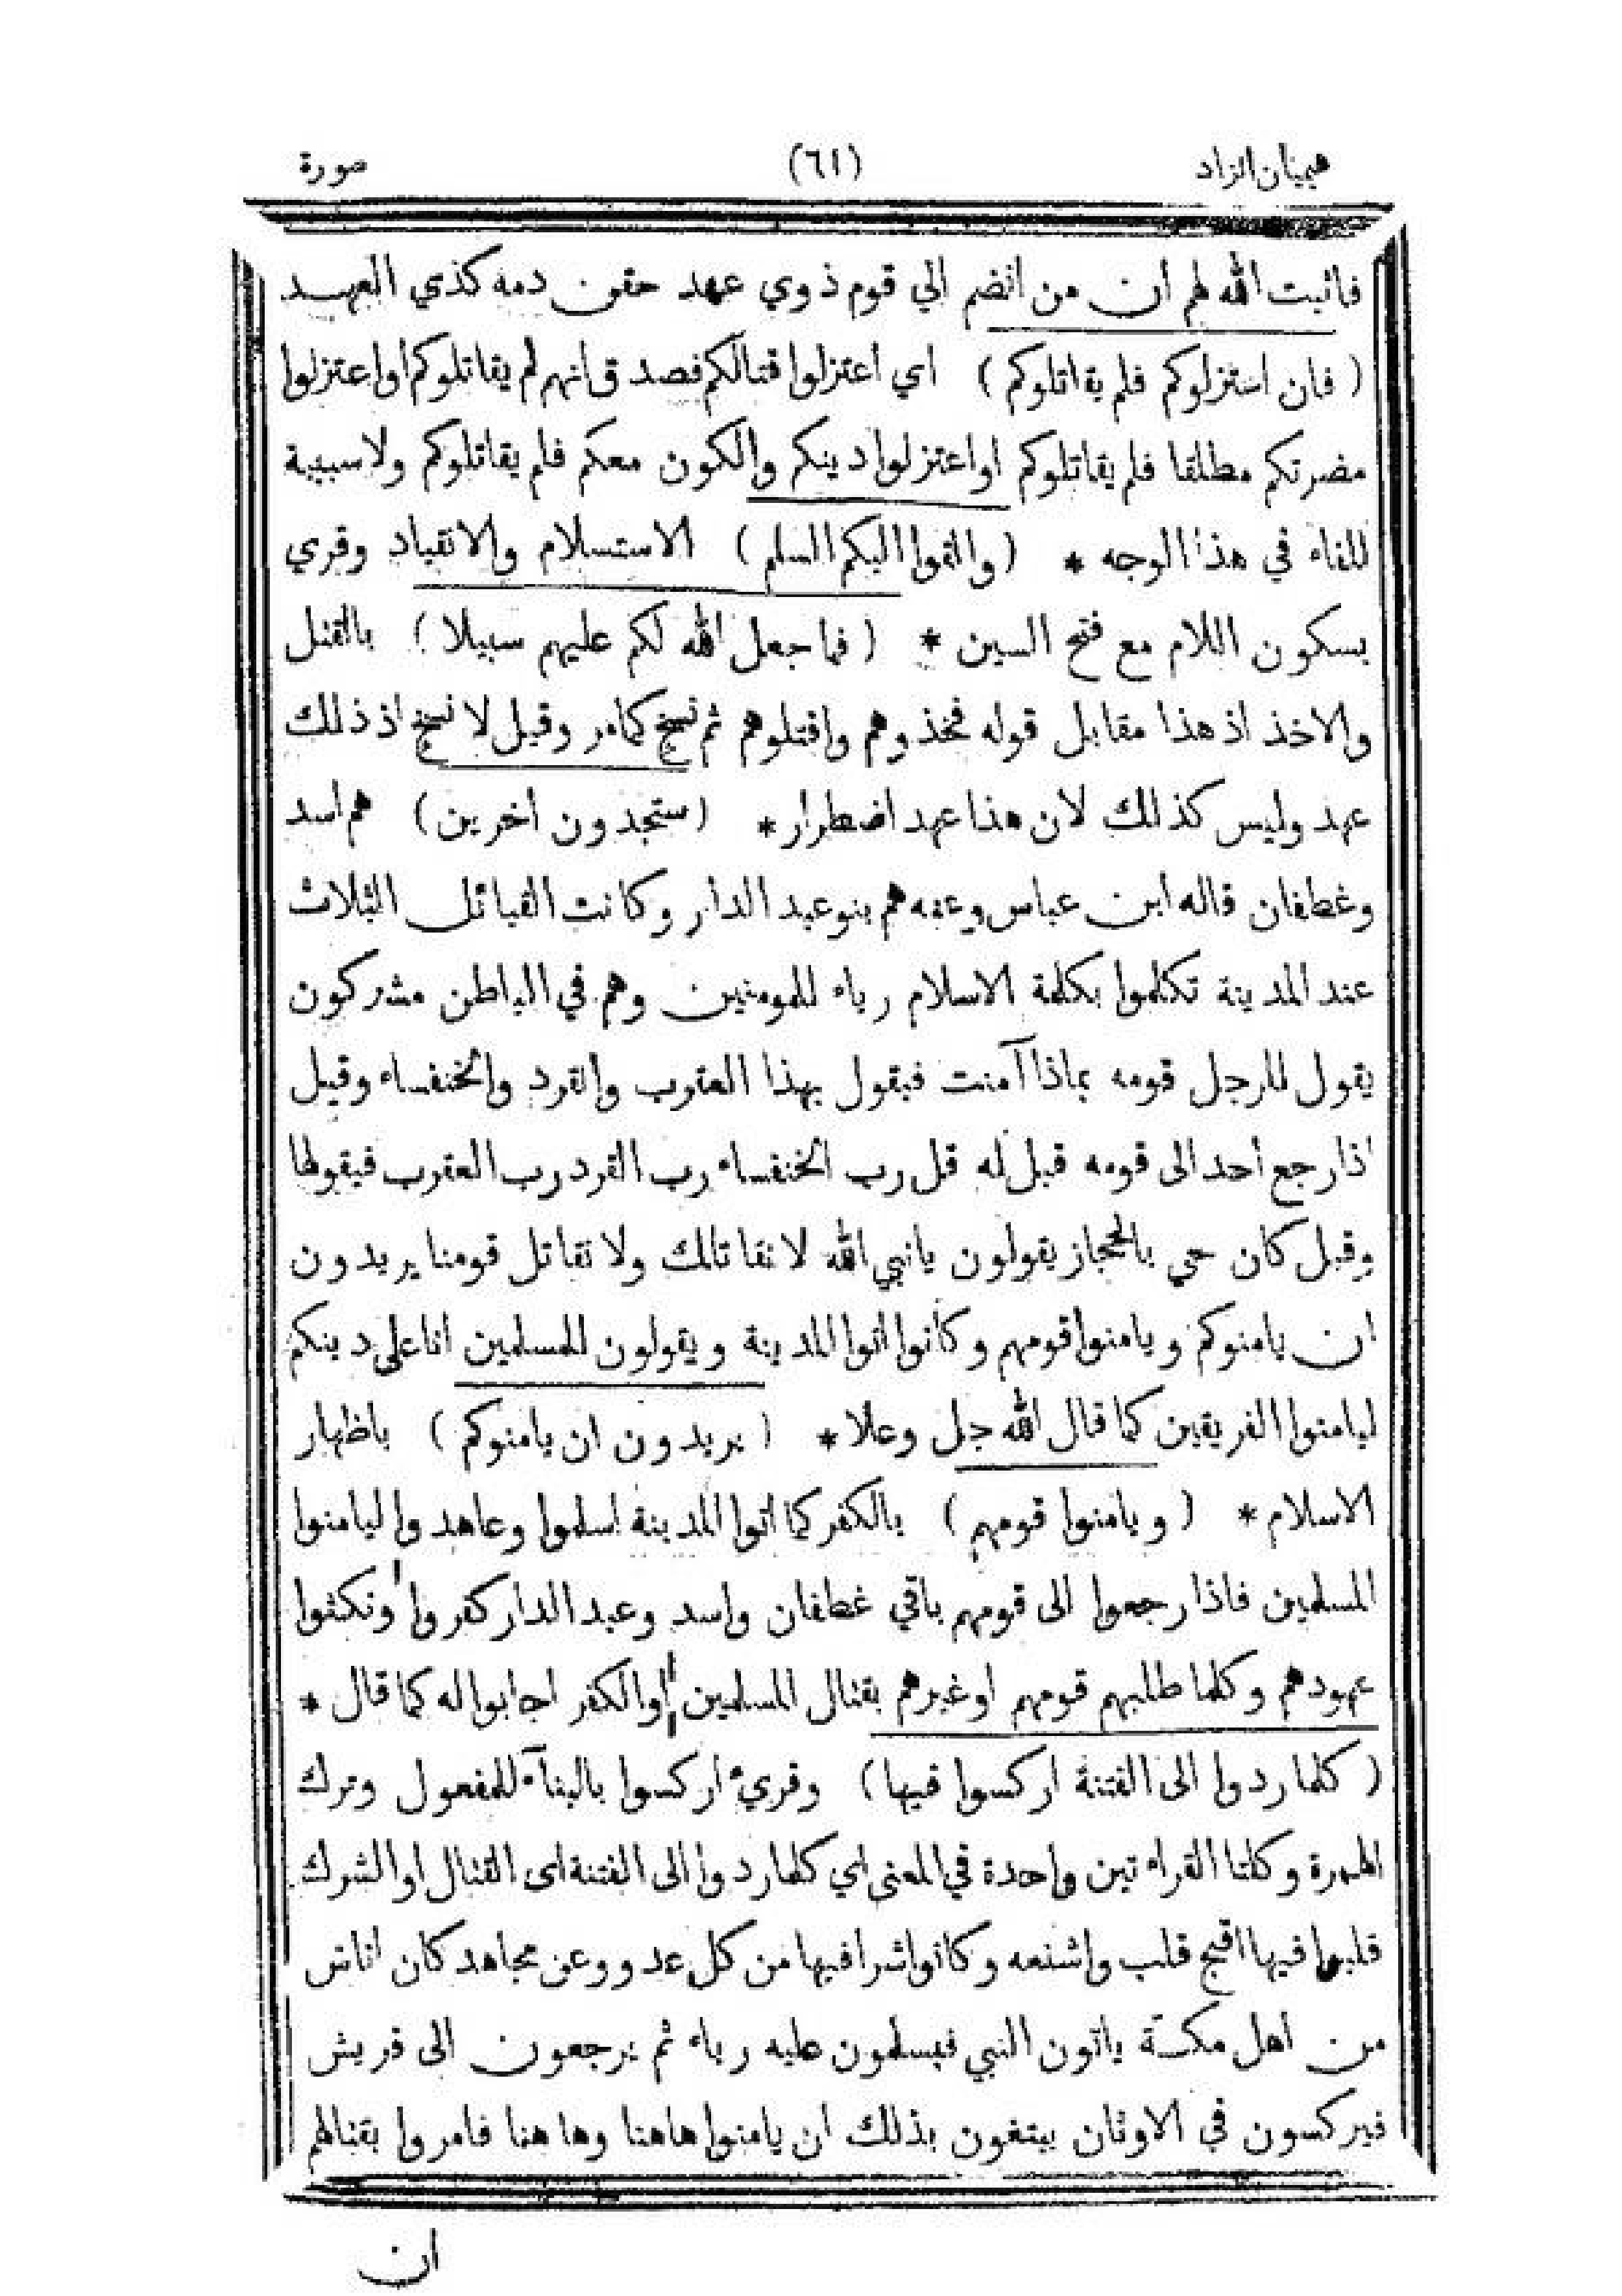 هيميان الزاد (٦١) صورة
فاثبت الله لهم أن من انضم الي قوم ذوي عهد حقن دمه كذي العهد
( فان استزلوكم فلم يقاتلوكم ) اي أعتزلوا قتالكم فصدق انهم لم يقاتلوكم أواعتزلوا
مضرتكم مطلقا فلم يقاتلوكم اواعتزلوا دينكم والكون معكم فلم يقاتلوكم ولاسببية
للفاء في هذا الوجه * ( والقوا اليكم السلم ) الاستسلام والانقياد وقري
بسكون اللام مع فتح السين * ( فما جعل الله لكم عليهم سبيلا ) بالقتل
والاخذ اذ هذا مقابل قوله فخذوهم واقتلوهم ثم نسخ كمامر وقيل لا نسخ اذ ذلك
عهد وليس كذلك لان هذا عهد اضطرار * ( ستجدون أخرين ) هم اسد
وغطفان قاله ابن عباس وعنه هم بنوعبد الدار وكانت القبائل الثلاث
عند المدينة تكلموا بكلمة الاسلام رياء للمومنين وهم في الباطن مشركون
يقول للرجل قومه بماذا آمنت فيقول بهذا العقرب والقرد والخنفساء وقيل
اذا رجع أحد الى قومه قيل له قل رب الخنفساء رب القرد رب العقرب فيقولها
وقيل كان حي بالحجاز يقولون يانبي الله لا نقاتلك ولا نقاتل قومنا يريدون
ان يامنوكم ويامنوا قومهم وكانوا اتوا المدينة ويقولون للمسلمين اناعلى دينكم
ليامنوا الفريقين كما قال الله جل وعلا * ( يريدون ان يامنوكم ) باظهار
الاسلام * ( ويامنوا قومهم ) بالكفر كما اتوا المدينة اسلموا وعاهدوا ليامنوا
المسلمين فاذا رجعوا الى قومهم باقي غطفان واسد وعبد الدار كفروا ونكثوا
عهودهم وكلما طلبهم قومهم اوغيرهم بقتال المسلمين أوالكفر اجابوا له كما قال *
( كلما ردوا الى الفتنة اركسوا فيها ) وقريء اركسوا بالبنآء للمفعول وترك
الهمزة وكلتا القراءتين واحدة في المعنى اي كلما ردوا الى الفتنة اى القتال اوالشرك
قلبوا فيها اقبح قلب واشنعه وكانوا شرا فيها من كل عدو وعن مجاهد كان اناس
من اهل مكة ياتون النبي فيسلمون عليه رياء ثم يرجعون الى قريش
فيركسون في الاوثان يبتغون بذلك ان يامنوا هاهنا وها هنا فامروا بقتالهم
ان